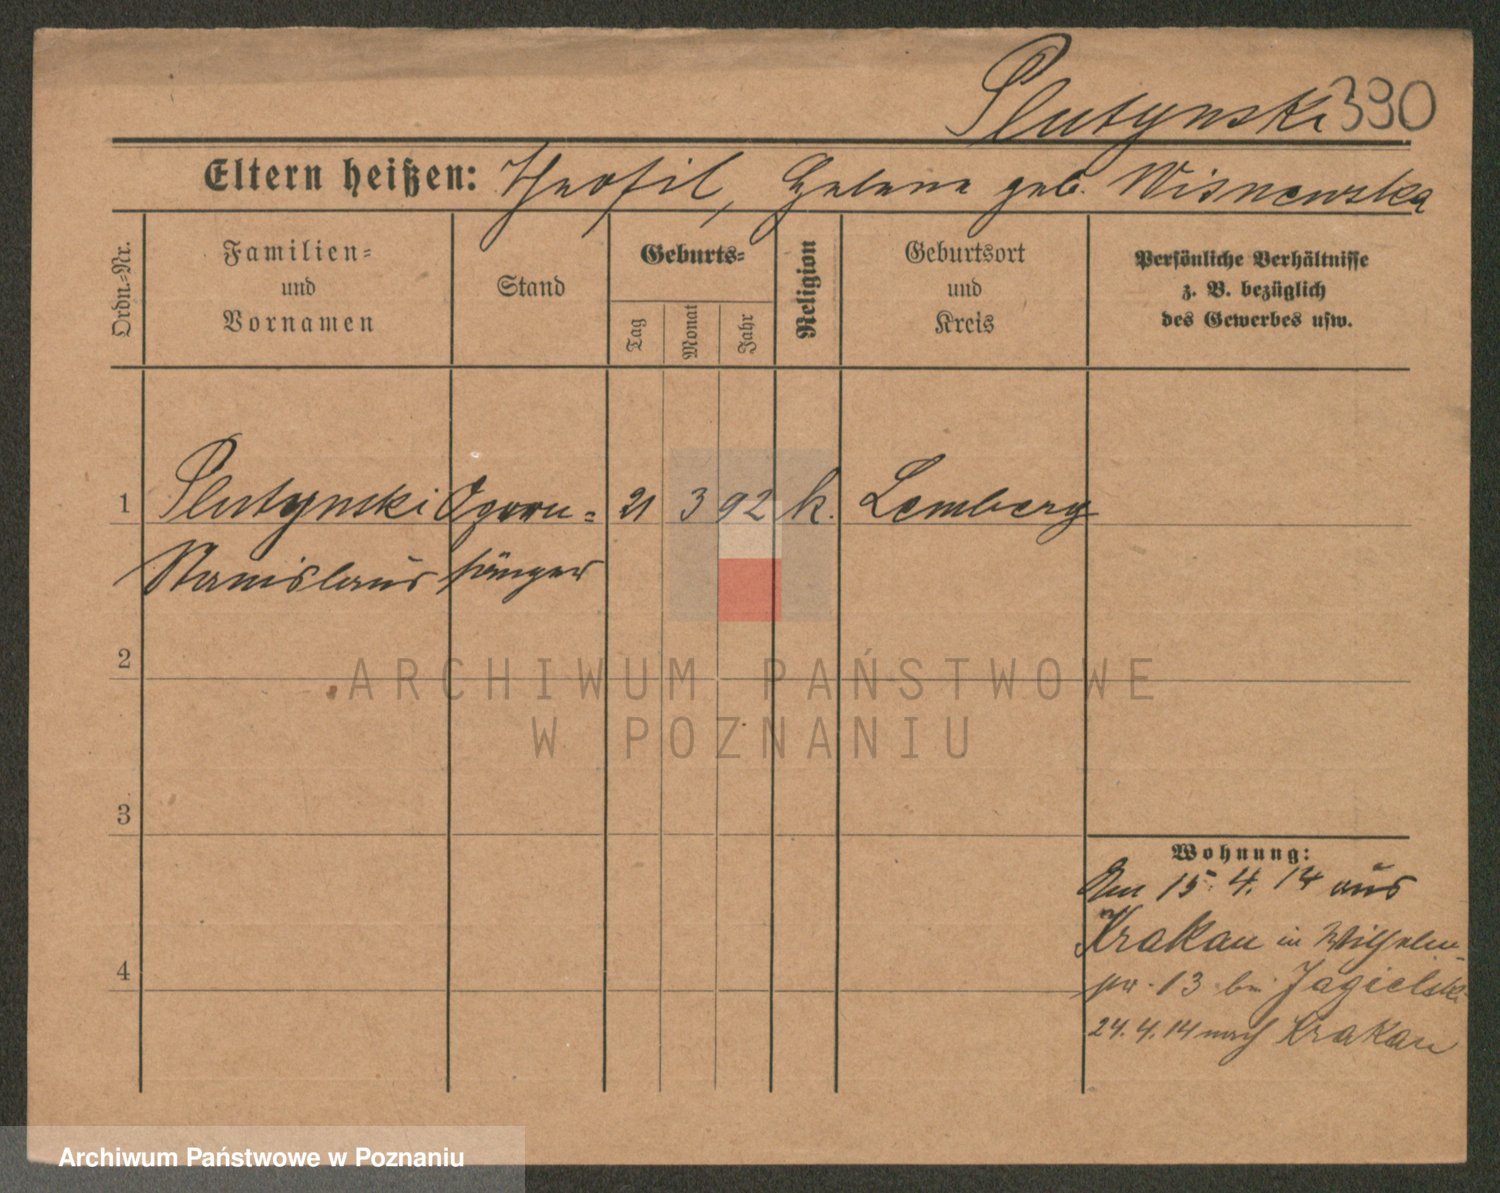 Plutynski 390
Eltern heißen: Theofil, Helene geb. Wisnewska
Ordn.-Nr.
Familien-
und
Vornamen
Stand
Geburts-
Tag
Monat
Jahr
Religion
Geburtsort
und
Kreis
Persönliche Verhältnisse
z. B. bezüglich
des Gewerbes usw.
1 Plutynski Opern- 21 3 92 k. Lemberg
Stanislaus sänger
2
3
4
Wohnung:
Am 15. 4. 14 aus
Krakau in Wilhelm-
str. 13 bei Jagielski
24. 4. 14 nach Krakau
ARCHIWUM PAŃSTWOWE
W POZNANIU
Archiwum Państwowe w Poznaniu